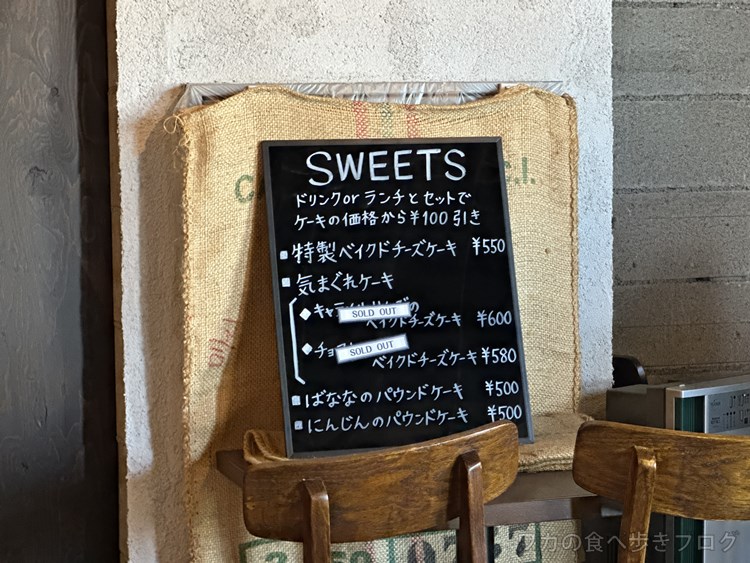 SWEETS
ドリンクorランチとセットで
ケーキの価格から¥100引き
特製ベイクドチーズケーキ ¥550
気まぐれケーキ
SOLD OUT
ベイクドチーズケーキ ¥600
SOLD OUT
ベイクドチーズケーキ ¥580
ばななのパウンドケーキ ¥500
にんじんのパウンドケーキ ¥500
の食べ歩きブログ